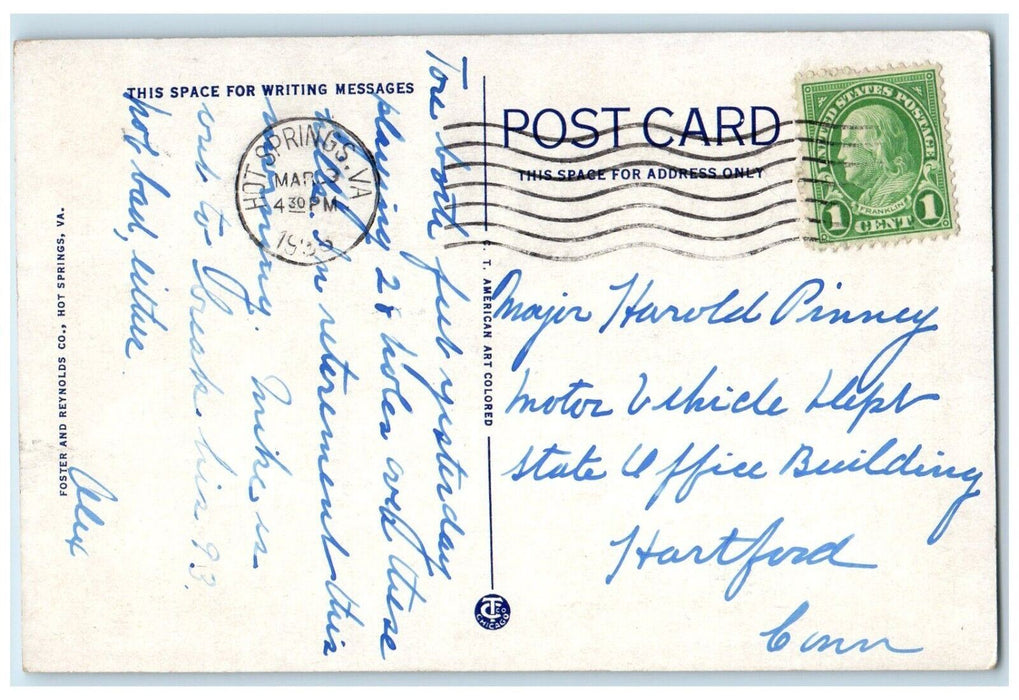 THIS SPACE FOR WRITING MESSAGES
Tore both feet yesterday
playing 28 holes over these
hills. In retirement this
morning. Mike is
out to break his 93.
not bad, either
Alex
FOSTER AND REYNOLDS CO., HOT SPRINGS, VA.
HOT SPRINGS, VA
MAR 3
4 30 PM
C. T. AMERICAN ART COLORED
CHICAGO
POST CARD
THIS SPACE FOR ADDRESS ONLY
UNITED STATES POSTAGE
FRANKLIN
1 CENT 1
Major Harold Pinney
Motor Vehicle Dept
State Office Building
Hartford
Conn